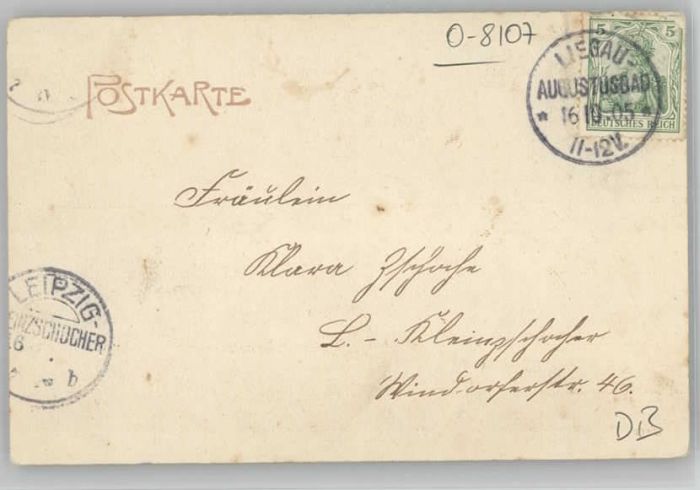 O-8107
POSTKARTE
5 5
DEUTSCHES REICH
LIEGAU-
AUGUSTUSBAD
* 16 10.05 *
11-12V.
Fräulein
Klara Zschoche
L. - Kleinzschocher
Windorferstr. 46.
LEIPZIG-
EINZSCHOCHER
6
b
DB